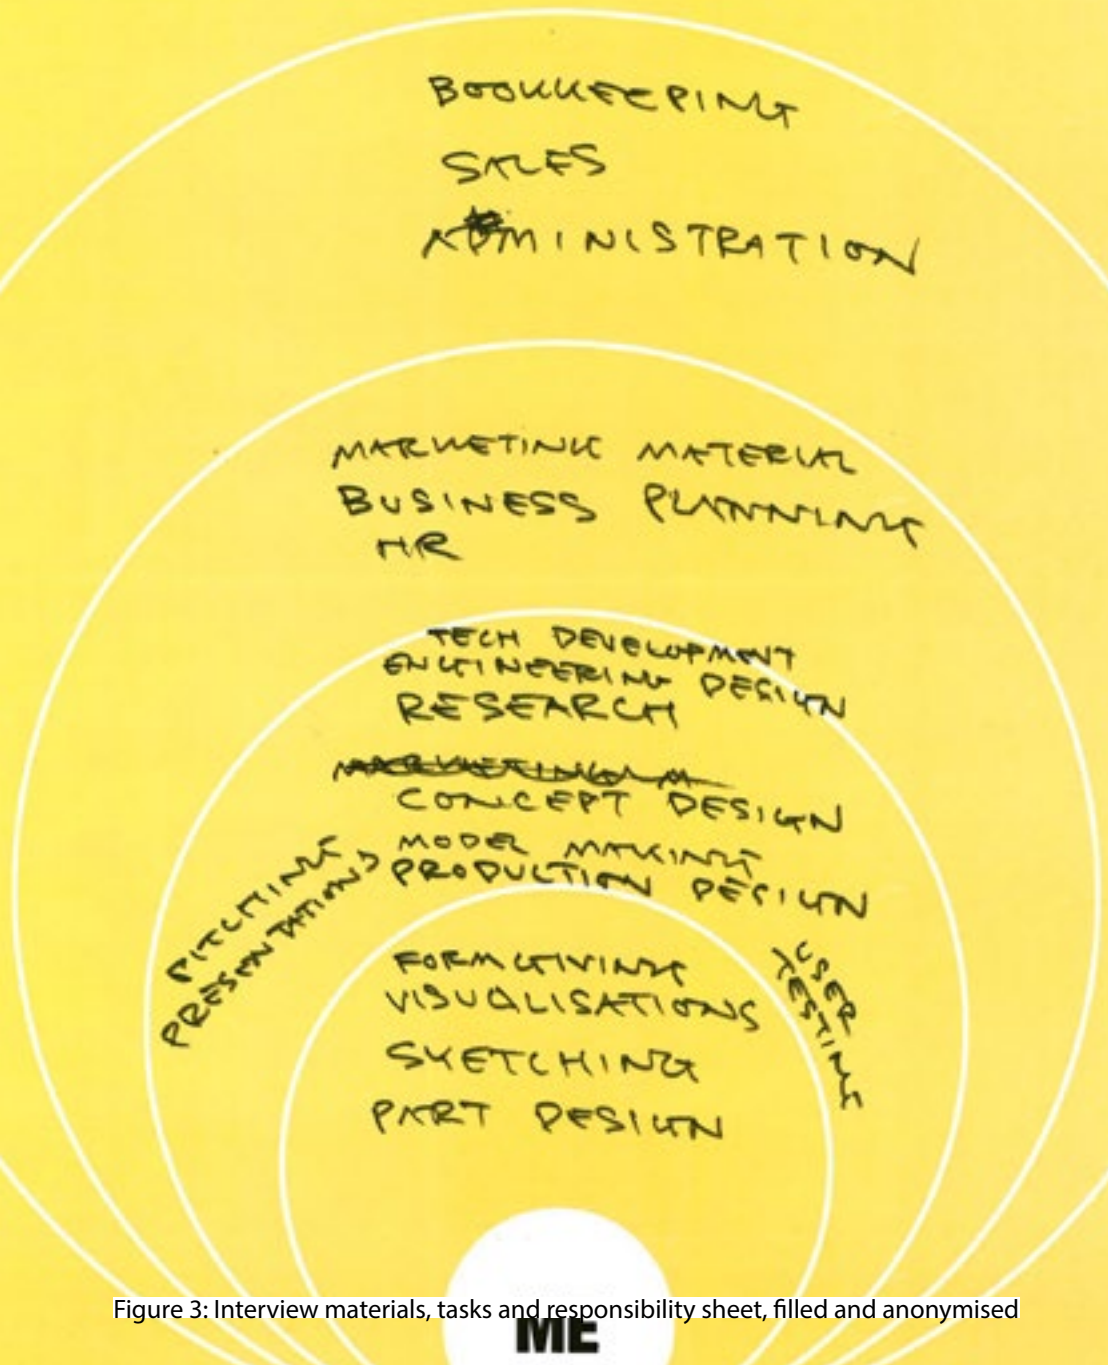 BOOKKEEPING
SALES
ADMINISTRATION
MARKETING MATERIAL
BUSINESS PLANNING
HR
TECH DEVELOPMENT
ENGINEERING DESIGN
RESEARCH
CONCEPT DESIGN
MODEL MAKING
PRODUCTION DESIGN
PITCHING
PRESENTATIONS
USER
TESTING
FORMGIVING
VISUALISATIONS
SKETCHING
PART DESIGN
Figure 3: Interview materials, tasks and responsibility sheet, filled and anonymised
ME